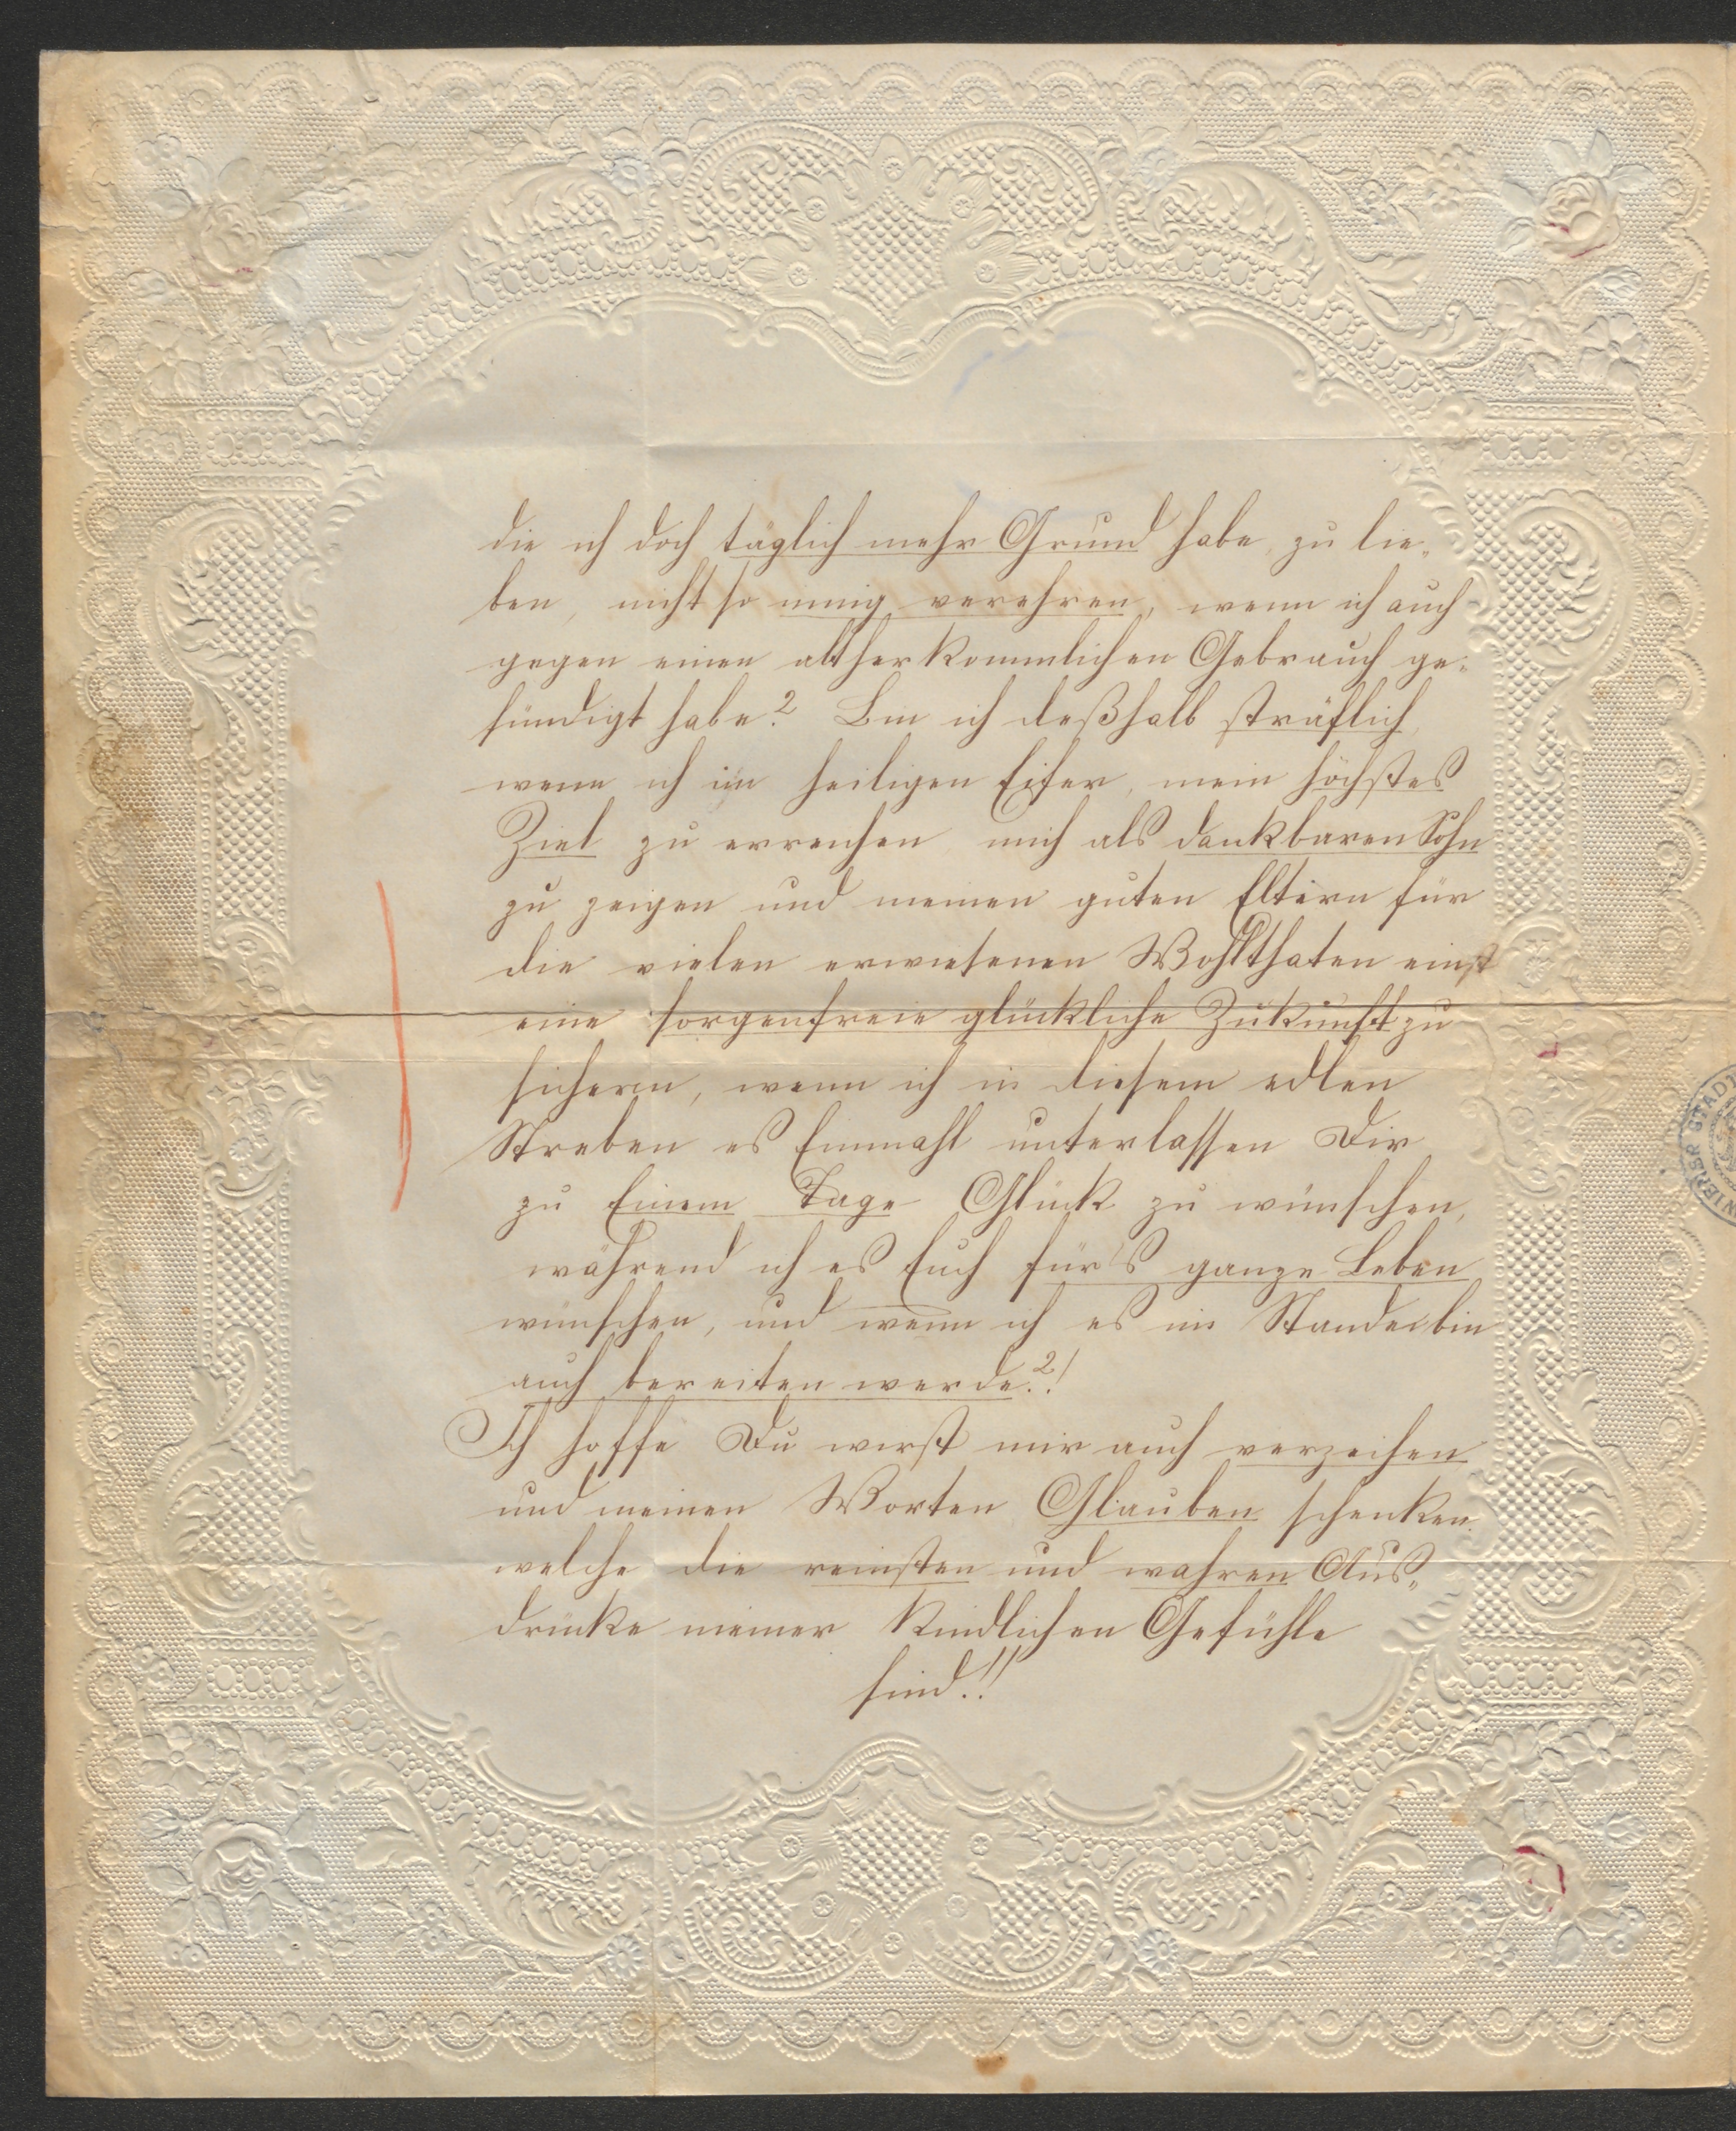 die ich doch täglich mehr Grund habe zu lie„
ben, nicht so innig verehren, wenn ich auch
gegen einen altherkommlichen Gebrauch ge„
sündigt habe? Bin ich deßhalb sträflich,
wenn ich im heiligen Eifer, mein höchstes
Ziel zu erreichen mich als dankbaren Sohn
zu zeigen und meinen guten Eltern für
die vielen erwiesenen Wohlthaten einst
eine sorgenfreie glückliche Zukunft zu
sichern, wenn ich in diesem edlen
Streben es Einmahl unterlassen Dir
zu Einem Tage Glück zu wünschen,
während ich es Euch für's ganze Leben
wünschen, und wenn ich es im Stande bin
auch bereiten werde.?!
Ich hoffe Du wirst mir auch verzeihen
und meinen Worten Glauben schenken
welche die reinsten und wahren Aus„
drücke meiner kindlichen Gefühle
sind.!!
WIENER STADT